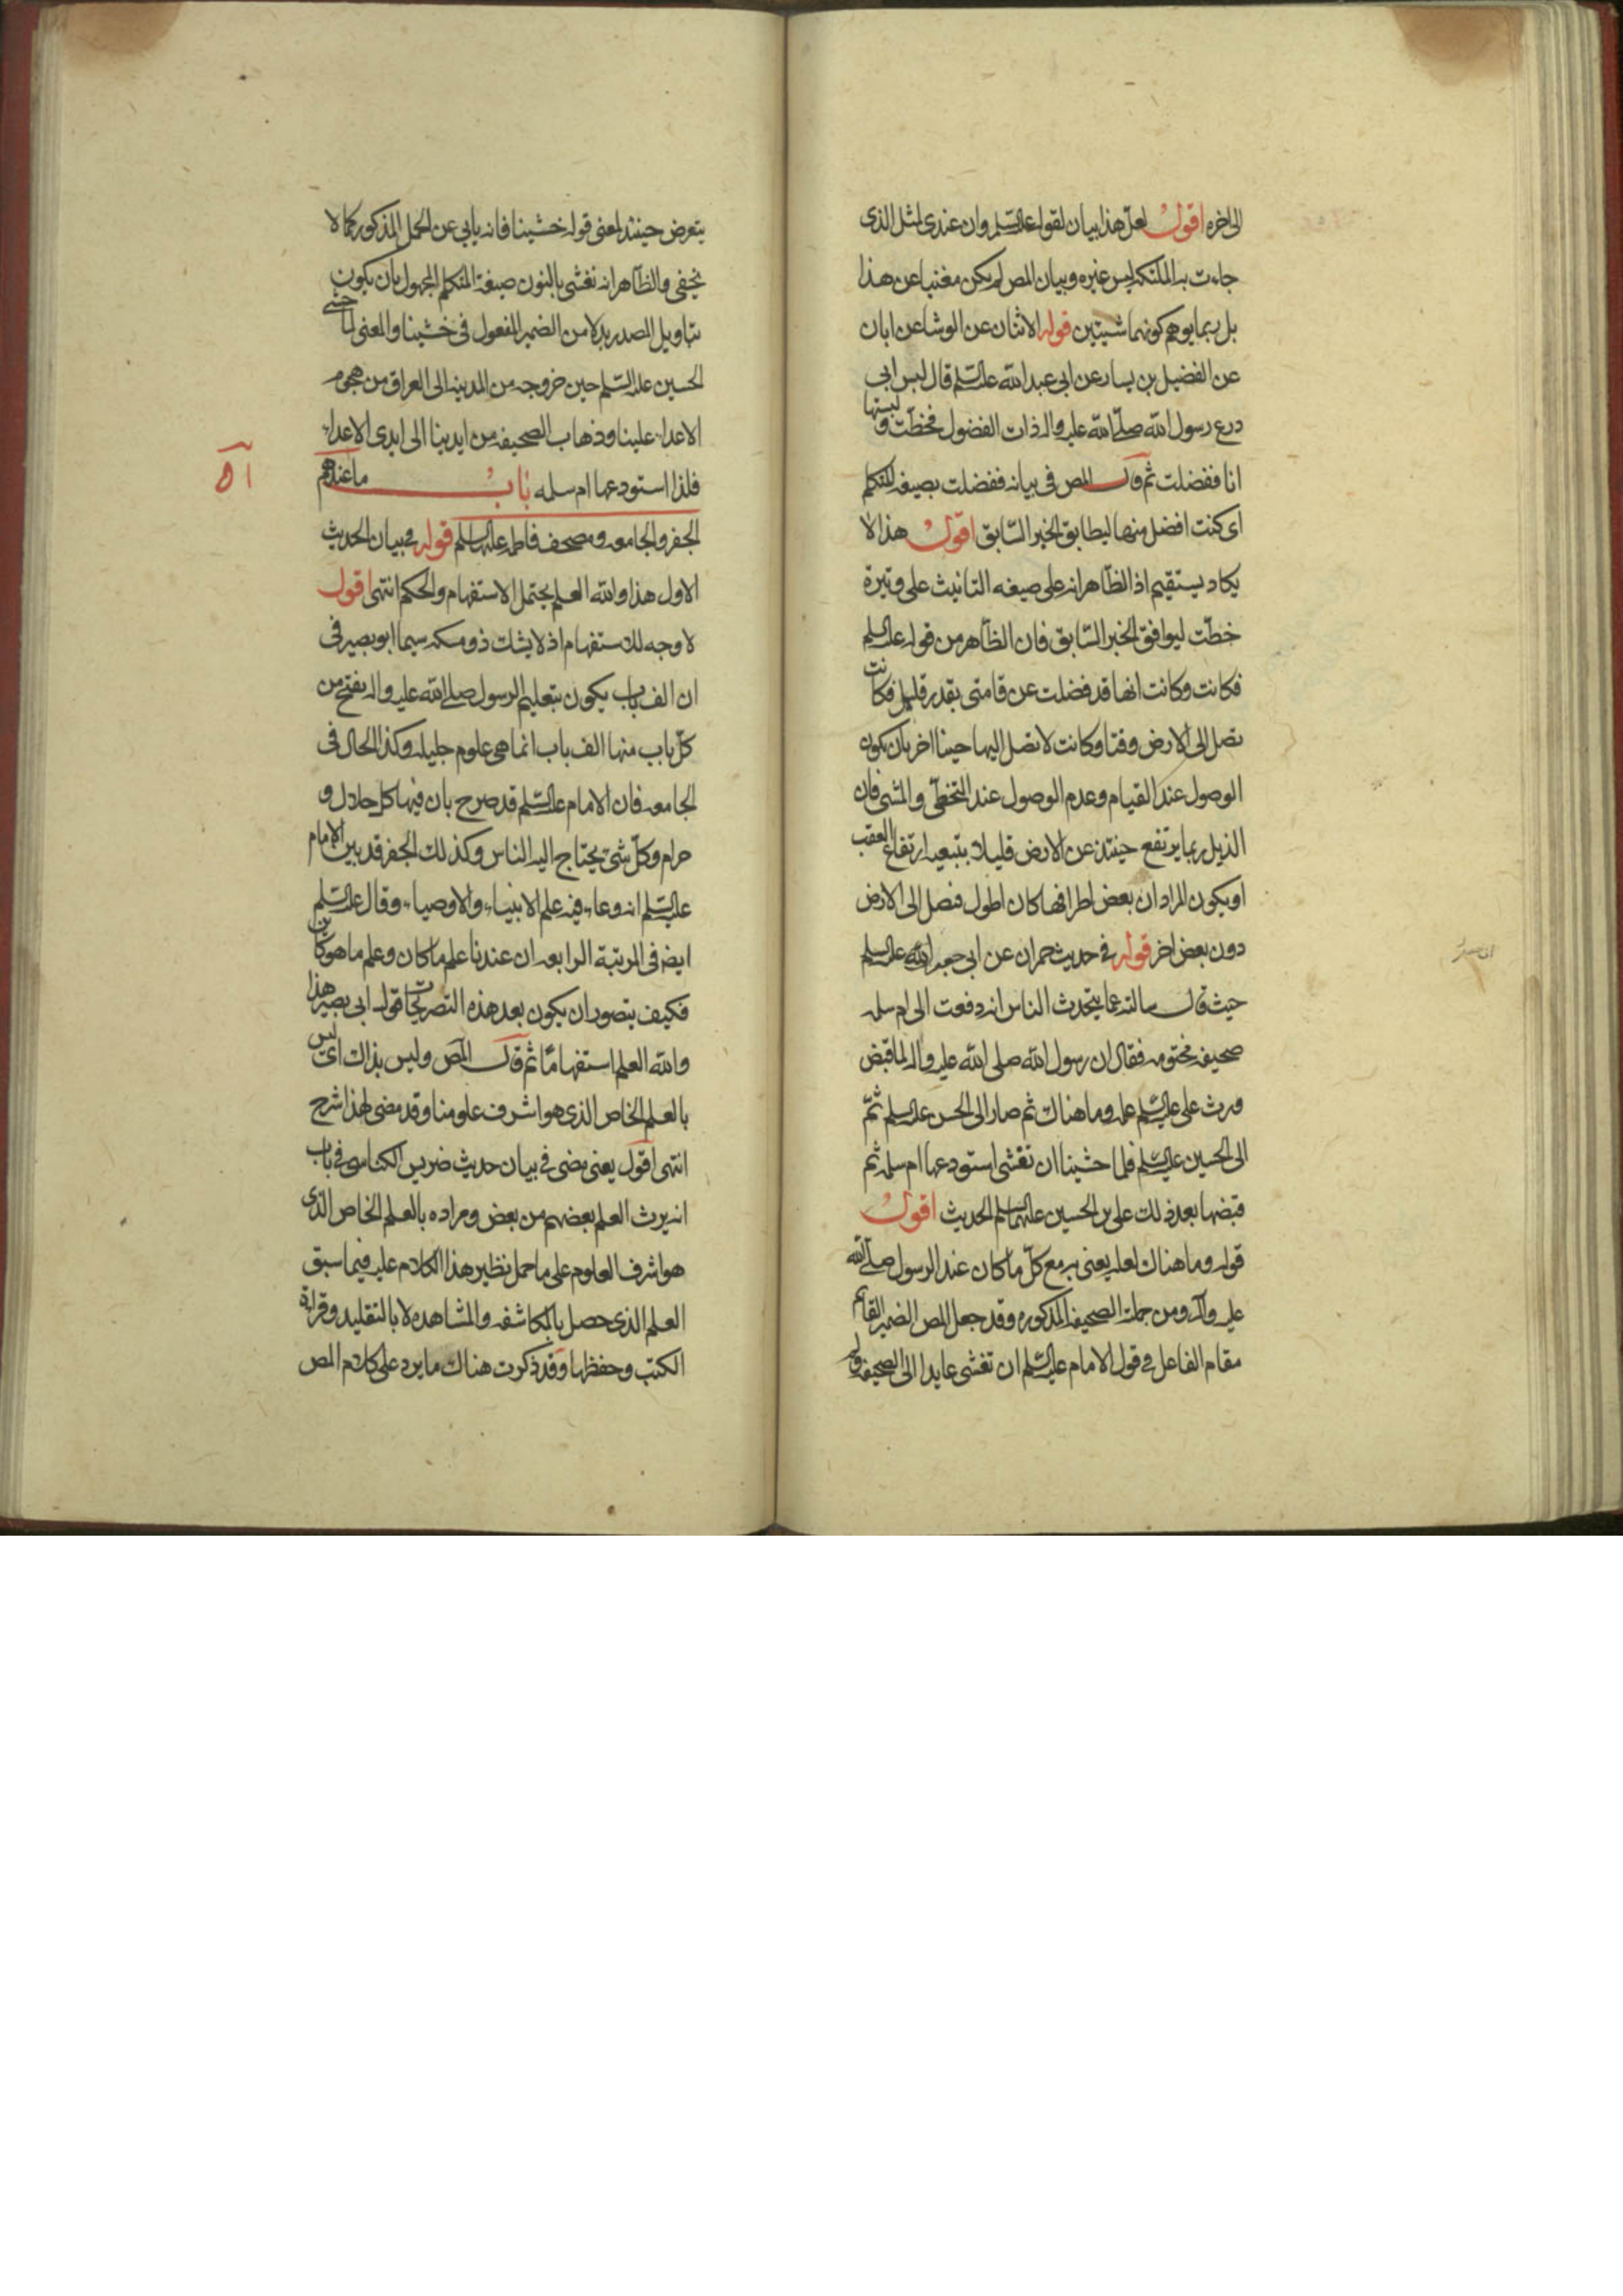 الى اخره اقول لعل هذا بيان لقوله عليه السلم وان عندى لمثل الذى
جاءت به الملئكة ليس غيره وبيان المص لم يكن مغنيا عن هذا
بل ربما يوهم كونهما شيئين قوله الاثنان عن الوشا عن ابان
عن الفضيل بن يسار عن ابى عبد الله عليه السلم قال لبس ابى
درع رسول الله صلى الله عليه واله ذات الفضول فخطّت ولبستها
انا ففضلت ثم قال المص فى بيانه ففضلت بصيغة المتكلم
اى كنت افضل منها ليطابق الخبر السّابق اقول هذا لا
يكاد يستقيم اذ الظّاهر انه على صيغه التانيث على وتيرة
خطّت ليوافق الخبر السّابق فان الظاهر من قوله عليه السلم
فكانت وكانت انها قد فضلت عن قامتى بقدر قليل فكانت
تصل الى الارض وقتا وكانت لا تصل اليها حينا اخر بان يكون
الوصول عند القيام وعدم الوصول عند التخطّى والمشى فان
الذيل ربما يرتفع حينئذ عن الارض قليلا بتبعية ارتفاع العقب
او يكون المراد ان بعض اطرافها كان اطول فتصل الى الارض
دون بعض اخر قوله فى حديث حمران عن ابى جعفر عليه السلم
حيث قال سالته عما يتحدث الناس انه دفعت الى ام سلمه
صحيفة مختومه فقال ان رسول الله صلى الله عليه واله لما قبض
ورث على عليه السلم علمه وما هناك ثم صار الى الحسن عليه السلم ثمّ
الى الحسين عليه السلم فلما خشينا ان نغشى استودعها ام سلمه ثم
قبضها بعد ذلك على بن الحسين عليهما السلم الحديث اقول
قوله وما هناك لعله يعنى به مع كلّ ما كان عند الرسول صلى الله
عليه واله ومن جملته الصحيفة المذكوره وقد جعل المص الضمير القائم
مقام الفاعل فى قول الامام عليه السلم ان تغشى عايدا الى الصحيفة ولم
يتعرض حينئذ لمعنى قوله خشينا فانه يابى عن الحمل المذكور كما لا
يخفى والظّاهر انه نغشى بالنون صيغة المتكلم المجهول بان يكون
بتاويل المصدر بدلا من الضمير المفعول فى خشينا والمعنى لما خشى
الحسين عليه السّلم حين خروجه من المدينه الى العراق من هجوم
الاعداء علينا وذهاب الصحيفه من ايدينا الى ايدى الاعداء
فلذا استودعها ام سلمه باب ما عندهم
الجفر والجامعه ومصحف فاطمه عليها السلم قوله فى بيان الحديث
الاول هذا والله العلم يحتمل الاستفهام والحكم انتهى اقول
لا وجه للاستفهام اذ لا يشك ذو مسكه سيما ابو بصير فى
ان الف باب يكون بتعليم الرسول صلى الله عليه واله يفتح من
كلّ باب منها الف باب انما هى علوم جليله وكذا الحال فى
الجامعه فان الامام عليه السّلم قد صرح بان فيها كل حلال و
حرام وكلّ شئ يحتاج اليه الناس وكذلك الجفر قد بين الامام
عليه السّلم انه وعاء فيه علم الانبياء والاوصياء وقال عليه السّلم
ايضه فى المرتبة الرابعه ان عندنا علم ما كان وعلم ما هو كائن
فكيف يتصور ان يكون بعد هذه التصريحات قول ابى بصير هذا
والله العلم استفهامًا ثم قال المص وليس بذاك اى ليس
بالعلم الخاص الذى هو اشرف علومنا وقد مضى لهذا شرح
انتهى اقول يعنى مضى فى بيان حديث ضريس الكناسى فى باب
انه يرث العلم بعضهم من بعض ومراده بالعلم الخاص الذى
هو اشرف العلوم على ما حمل نظير هذا الكلام عليه فيما سبق
العلم الذى حصل بالمكاشفه والمشاهده لا بالتقليد وقراءة
الكتب وحفظها وقد ذكرت هناك ما يرد على كلام المص